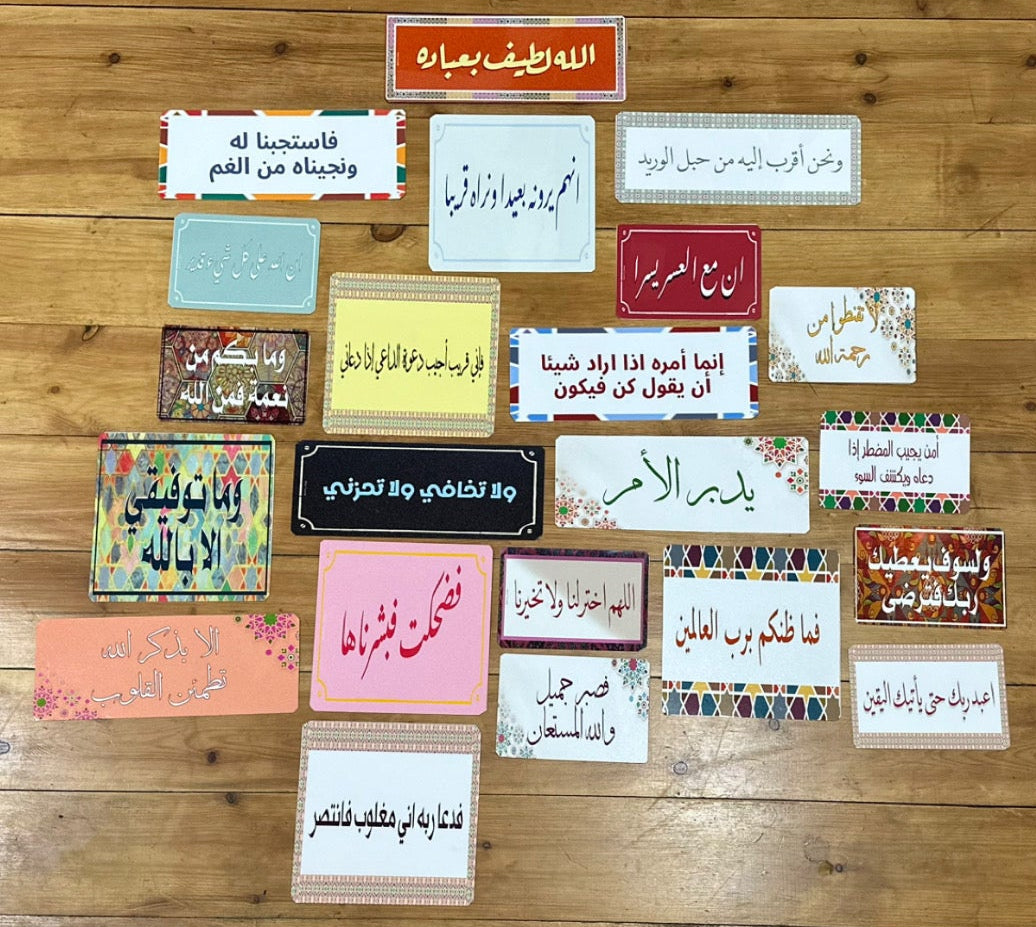 الله لطيف بعباده
فاستجبنا له
ونجيناه من الغم
انهم يرونه بعيدا ونراه قريبا
ونحن أقرب إليه من حبل الوريد
ان الله على كل شيء قدير
ان مع العسر يسرا
لا تقنطوا من
رحمة الله
وما بكم من
نعمة فمن الله
فإني قريب أجيب دعوة الداعي إذا دعاني
إنما أمره اذا اراد شيئا
أن يقول كن فيكون
أمن يجيب المضطر إذا
دعاه ويكشف السوء
وما توفيقي
الا بالله
ولا تخافي ولا تحزني
يدبر الأمر
ولسوف يعطيك
ربك فترضى
فضحكت فبشرناها
اللهم اختر لنا ولا تخيرنا
فما ظنكم برب العالمين
الا بذكر الله
تطمئن القلوب
فصبر جميل
والله المستعان
اعبد ربك حتى يأتيك اليقين
فدعا ربه اني مغلوب فانتصر